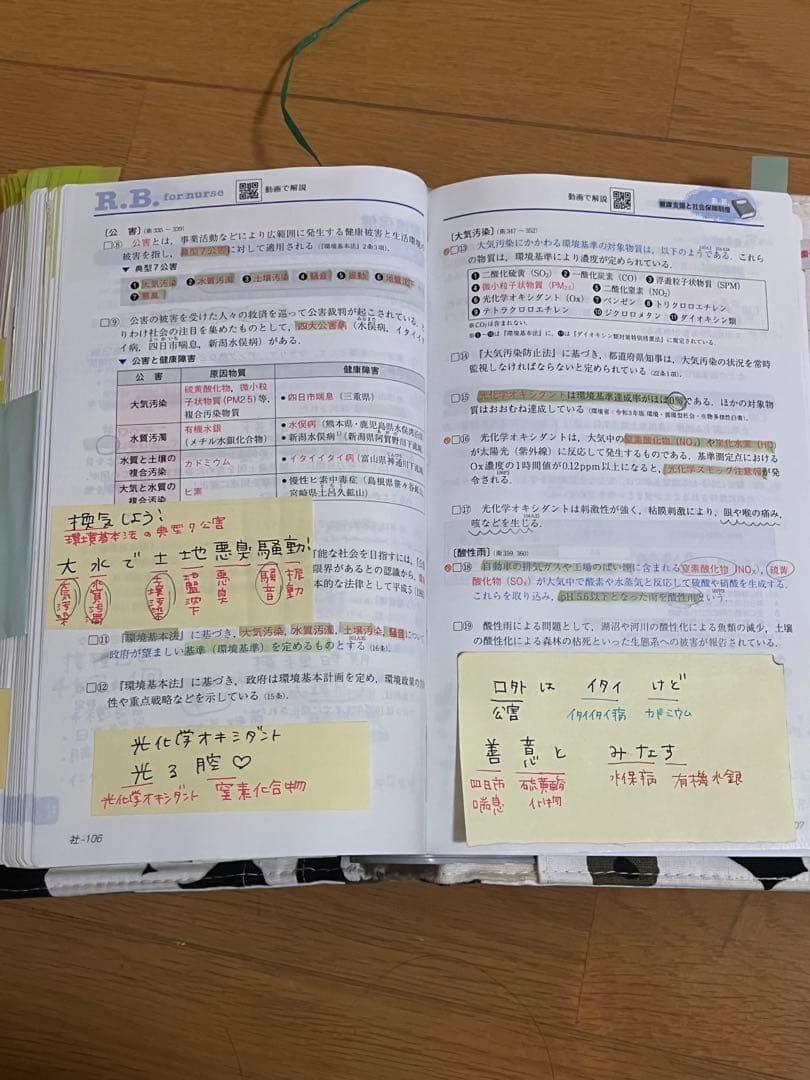 R.B. for nurse 動画で解説
〔公　害〕(衆335-339)
□⑧ 公害とは，事業活動などにより広範囲に発生する健康被害と生活環境の
被害を指し，典型7公害に対して適用される（『環境基本法』2条3項）．
▼典型7公害
❶大気汚染 ❷水質汚濁 ❸土壌汚染 ❹騒音 ❺振動 ❻地盤沈下
❼悪臭
□⑨ 公害の被害を受けた人々の救済を巡って公害裁判が起こされている．と
りわけ社会の注目を集めたものとして，四大公害病（水俣病，イタイイタ
イ病，四日市喘息，新潟水俣病）がある．
▼公害と健康障害
公　害 原因物質 健康障害
大気汚染 硫黄酸化物，微小粒子状物質(PM2.5)等，複合汚染物質 ●四日市喘息（三重県）
水質汚濁 有機水銀（メチル水銀化合物） ●水俣病（熊本県・鹿児島県水俣湾沿
●新潟水俣病（新潟県阿賀野川下流域
水質と土壌の複合汚染 カドミウム ●イタイイタイ病（富山県神通川下流域
大気と水質の複合汚染 ヒ素 ●慢性ヒ素中毒症（島根県笹ヶ谷鉱山
宮崎県土呂久鉱山）
換気しよう!
環境基本法の典型7公害
大水で土地悪臭騒動
大気汚染 水質汚濁 土壌汚染 地盤沈下 悪臭 騒音 振動
能な社会を目指すには，
限界があるとの認識から，
本的な法律として平成5
□⑪ 『環境基本法』に基づき，大気汚染，水質汚濁，土壌汚染，騒音について
政府が望ましい基準（環境基準）を定めるものとする（16条）．
□⑫ 『環境基本法』に基づき，政府は環境基本計画を定め，環境政策の
性や重点戦略などを示している（15条）．
光化学オキシダント
光る腟♡
光化学オキシダント 窒素化合物
社-106
動画で解説
健康支援と社会保障制度
〔大気汚染〕(衆347-352)
⑬ 大気汚染にかかわる環境基準の対象物質は，以下のようである．これら
の物質は，環境基準により濃度が定められている．
❶二酸化硫黄（SO₂） ❷一酸化炭素（CO） ❸浮遊粒子状物質（SPM）
❹微小粒子状物質（PM2.5） ❺二酸化窒素（NO₂）
❻光化学オキシダント（Ox） ❼ベンゼン ❽トリクロロエチレン
❾テトラクロロエチレン ❿ジクロロメタン ⓫ダイオキシン類
※CO₂は含まれない．
※❶〜❿は『環境基本法』に，⓫は『ダイオキシン類対策特別措置法』に規定されている．
□⑭ 『大気汚染防止法』に基づき，都道府県知事は，大気汚染の状況を常時
監視しなければならないと定められている（22条1項）．
□⑮ 光化学オキシダントは環境基準達成率がほぼ0％である．ほかの対象物
質はおおむね達成している（環境省：令和3年版 環境・循環型社会・生物多様性白書）．
□⑯ 光化学オキシダントは，大気中の窒素酸化物（NOx）や炭化水素（HC）
が太陽光（紫外線）に反応して発生するものである．基準測定点における
Ox濃度の1時間値が0.12ppm以上になると，光化学スモッグ注意報が発
令される．
□⑰ 光化学オキシダントは刺激性が強く，粘膜刺激により，眼や喉の痛み，
咳などを生じる．
〔酸性雨〕(衆359, 360)
⑱ 自動車の排気ガスや工場のばい煙に含まれる窒素酸化物（NOx），硫黄
酸化物（SOx）が大気中で酸素や水蒸気と反応して硫酸や硝酸を生成する．
これらを取り込み，pH 5.6以下となった雨を酸性雨という．
□⑲ 酸性雨による問題として，湖沼や河川の酸性化による魚類の減少，土壌
の酸性化による森林の枯死といった生態系への被害が報告されている．
口外は イタイ けど
公害 イタイイタイ病 カドミウム
善意と みなす
四日市喘息 硫黄酸化物 水保病 有機水銀